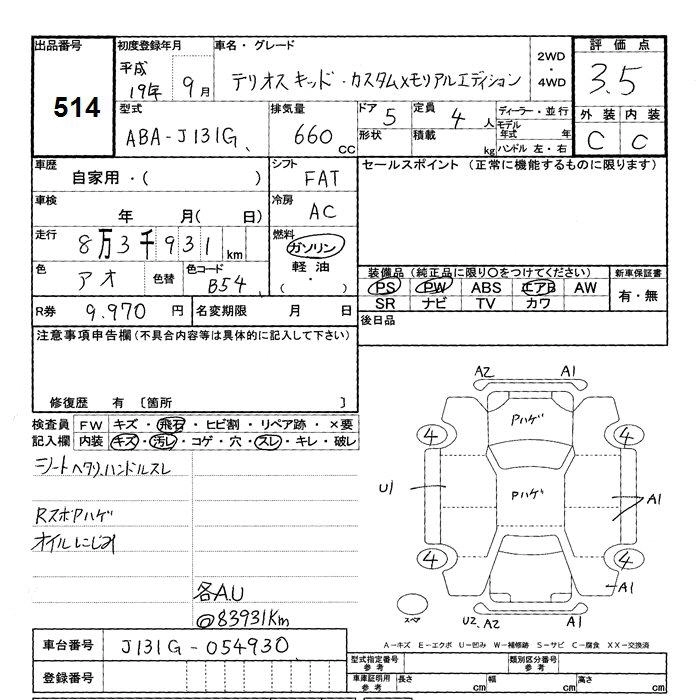 出品番号 初度登録年月 車名・グレード 2WD・4WD 評価点
514 平成19年 9月 テリオスキッド・カスタムXモリアルエディション 3.5
型式 排気量 ドア 5 定員 4人 ディーラー・並行 外装 内装
ABA-J131G 660cc 形状 積載 kg モデル年式 年 C C
ハンドル 左・右
車歴 シフト セールスポイント (正常に機能するものに限ります)
自家用・( ) FAT
車検 冷房
年 月( 日) AC
走行 8万3千931km 燃料
ガソリン
色 アオ 色替 色コード B54 軽油 装備品(純正品に限り○をつけてください) 新車保証書
・( ) PS PW ABS エアB AW 有・無
SR ナビ TV カワ
R券 9.970円 名変期限 月 日 後日品
注意事項申告欄(不具合内容等は具体的に記入して下さい)
修復歴 有 〔箇所 〕
検査員 FW キズ・飛石・ヒビ割・リペア跡・×要
記入欄 内装 キズ・汚レ・コゲ・穴・スレ・キレ・破レ
シートヘタリ.ハンドルスレ
RスポPハゲ
オイルにじみ
各A.U
@83931Km
A2 A1
Pハゲ
4 4
U1 Pハゲ A1
4 4
A1
スペア U2、A2 A1
A-キズ E-エクボ U-凹み W-補修跡 S-サビ C-腐食 XX-交換済
車台番号 J131G-054930
型式指定番号 参考 類別区分番号 参考
登録番号 車庫証明用 参考 長さ cm 幅 cm 高さ cm